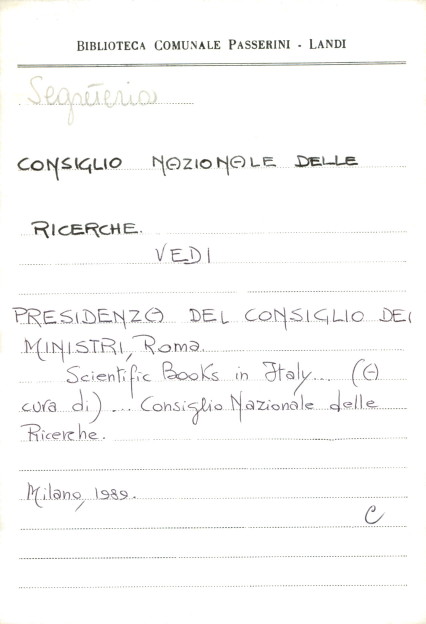 BIBLIOTECA COMUNALE PASSERINI - LANDI
Segreteria
CONSIGLIO NAZIONALE DELLE
RICERCHE.
VEDI
PRESIDENZA DEL CONSIGLIO DEI
MINISTRI, Roma.
Scientific Books in Italy... (A
cura di)... Consiglio Nazionale delle
Ricerche.
Milano, 1989.
C